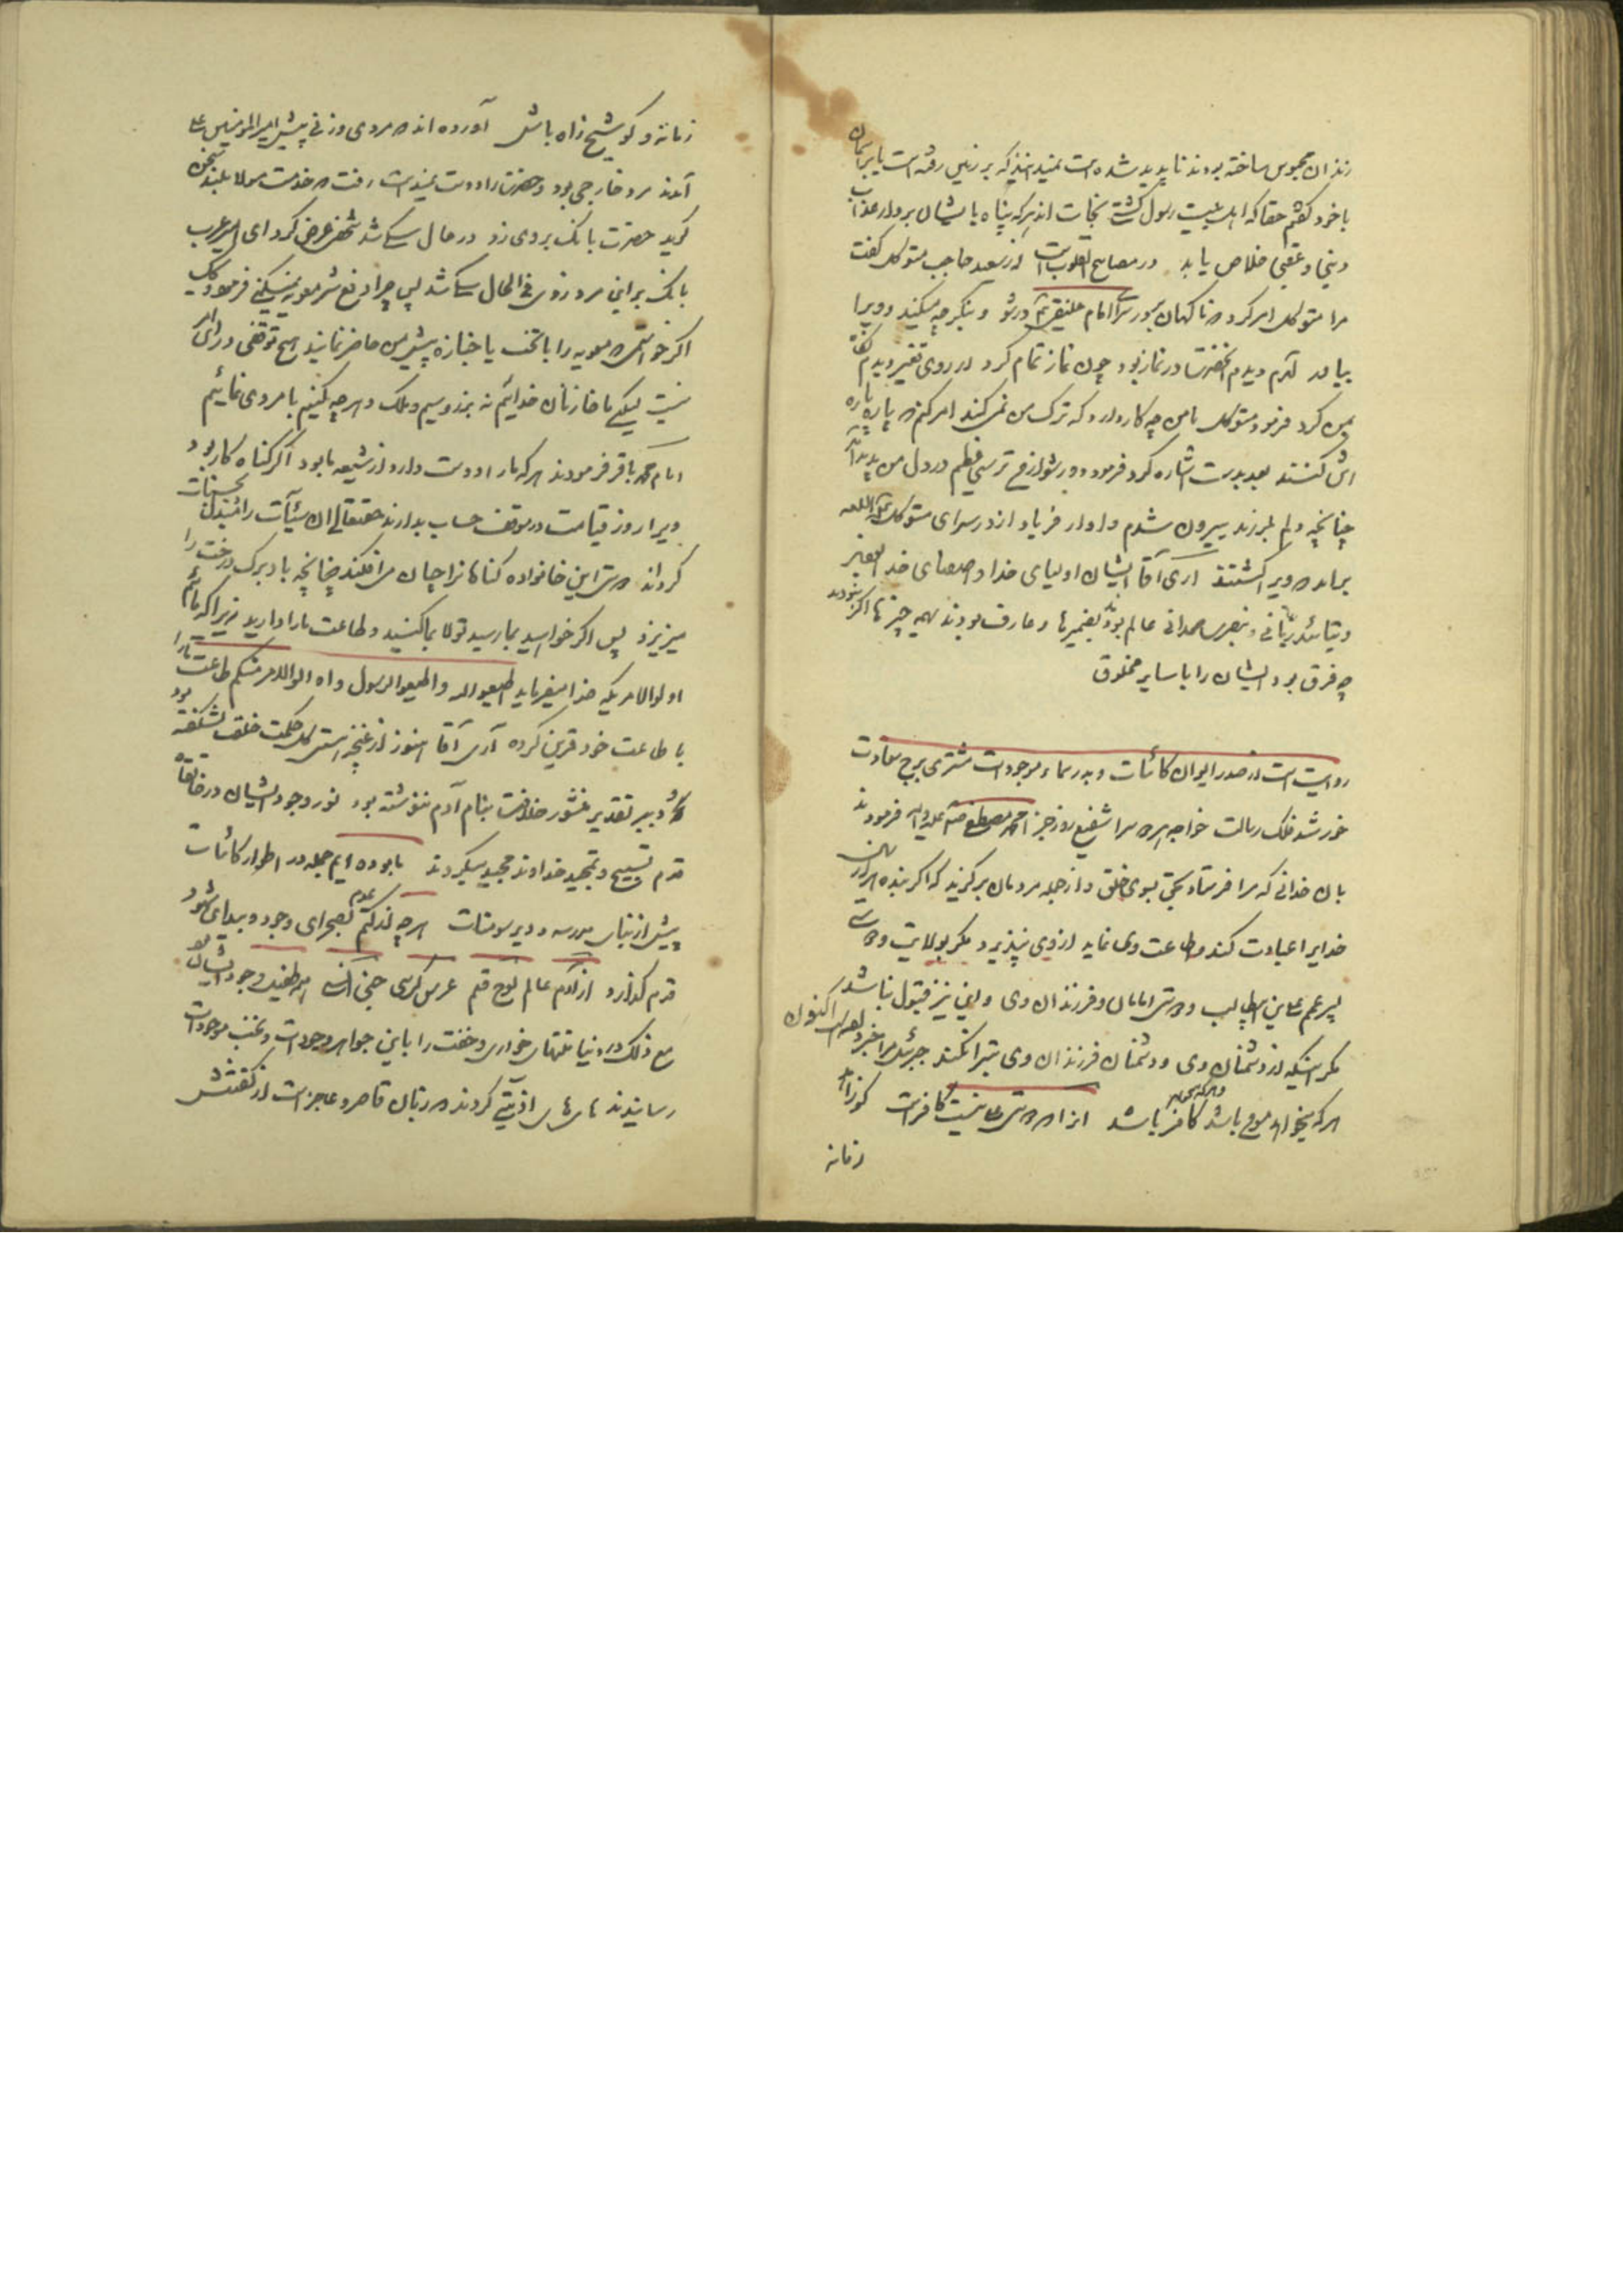 زندان محبوس ساخته بودند ناپدید شده است نمیدانند که بر زمین رفته است یا بر آسمان
با خود گفتم حقا که اهل بیت رسول کشتی نجات اند هر که پناه بایشان برد از عذاب
دینی و عقبی خلاص یابد در مصابیح القلوب است از سعید حاجب متوکل گفت
مرا متوکل امر کرد که ناگهان برو در سرای امام علینقی در شو و بنگر چه میکند و ویرا
بیاور آمدم دیدم آنحضرت در نماز بود چون نماز تمام کرد در روی تغییر دیدم
بمن کرد فرمود متوکل با من چه کار دارد که ترک من نمیکند امر کنم که پاره پاره
اش کنند بعد بدست اشاره کرد فرمود دور شو از ترسی عظیم در دل من پدید آمد
چنانچه دلم لرزید بیرون شدم و از در سرای متوکل
برآمد که ویرا کشتند اری آقا ایشان اولیای خدا و اوصیای
و بتائید ربانی و بنصرت صمدانی عالم بودند بضمیرها و عارف بودند بهمه چیزها اگر نبودند
چه فرق بود ایشان را با سایر مخلوق
روایت است از صدر ایوان کائنات و بدر سماء موجودات مشتری برج سعادت
خورشید فلک رسالت خواجه هر دو سرا شفیع روز جزا محمد مصطفی صلی الله علیه و اله فرمودند
بان خدائی که مرا فرستاد بحق بسوی خلق و از جمله مردمان برگزید که اگر بنده هزار سال
خدایرا عبادت کند و طاعت وی نماید از وی نپذیرد مگر بولایت و دوستی
پسر عم علی بن ابیطالب و دوستی امامان و فرزندان وی و این نیز قبول نباشد
مگر اینکه از دشمنان وی و دشمنان فرزندان وی تبرا نکند جبرئیل مرا خبر داد اکنون
هر که میخواهد مومن باشد و هر که میخواهد کافر باشد انرا که دوستی علی نیست کافر است گو زاهد
زمانه
زمانه و گو شیخ راه باش آورده اند که مردی و زنی پیش امیرالمومنین ع
آمدند مرد خارجی بود و حضرت را دوست نمیداشت رفت که خدمت مولا بلند سخن
گوید حضرت بانک بر وی زد در حال سگ شد شخصی عرض کرد ای امیر عرب
بانک بر این مرد زدی فی الحال سگ شد پس چرا دفع شر معویه نمیکنی فرمود
اگر خواستمی که معویه را با تخت یا جنازه پیش من حاضر نمایند هیچ توقفی در
نیست لیکن ما خازنان خدائیم نه بر زر و سیم و ملک و هر چه کنیم با مر وی نمائیم
امام محمد باقر فرمودند هر که ما را دوست دارد از شیعه ما بود اگر گناه کار بود
ویرا روز قیامت در موقف حساب بدارند حقتعالی ان سیئات را مبدل بحسنات
گرداند دوستی این خانواده گناهانرا چنان میافکند چنانچه باد برگ درخت را
میریزد پس اگر خواهید بما رسید تولا بما کنید و طاعت ما را دارید زیرا که مائیم
اولوالامریکه خدا میفرماید اطیعوا الله و اطیعوا الرسول و اولوالامر منکم طاعت ما را
با طاعت خود قرین کرده آری آقا هنوز از غنچه هستی گل حکمت خلقت نشکفته بود
و دبیر تقدیر منشور خلافت بنام آدم ننوشته بود نور وجود ایشان در خانقاه
قدم تسبیح و تمجید خداوند مجید میکردند ما بوده ایم جمله در اطوار کائنات
پیش از بنای مدرسه و دیر سومنات هر چه از کتم عدم بصحرای وجود و پیدای شهود
قدم گذارد از آدم عالم لوح قلم عرش کرسی جن انس همه طفیل وجود ایشان بود
مع ذلک در دنیا منتهای خواری و خفت را باین جواهر وجودات و نخبه موجودات
رسانیدند اذیتی کردند که زبان قاصر و عاجز است از گفتنش